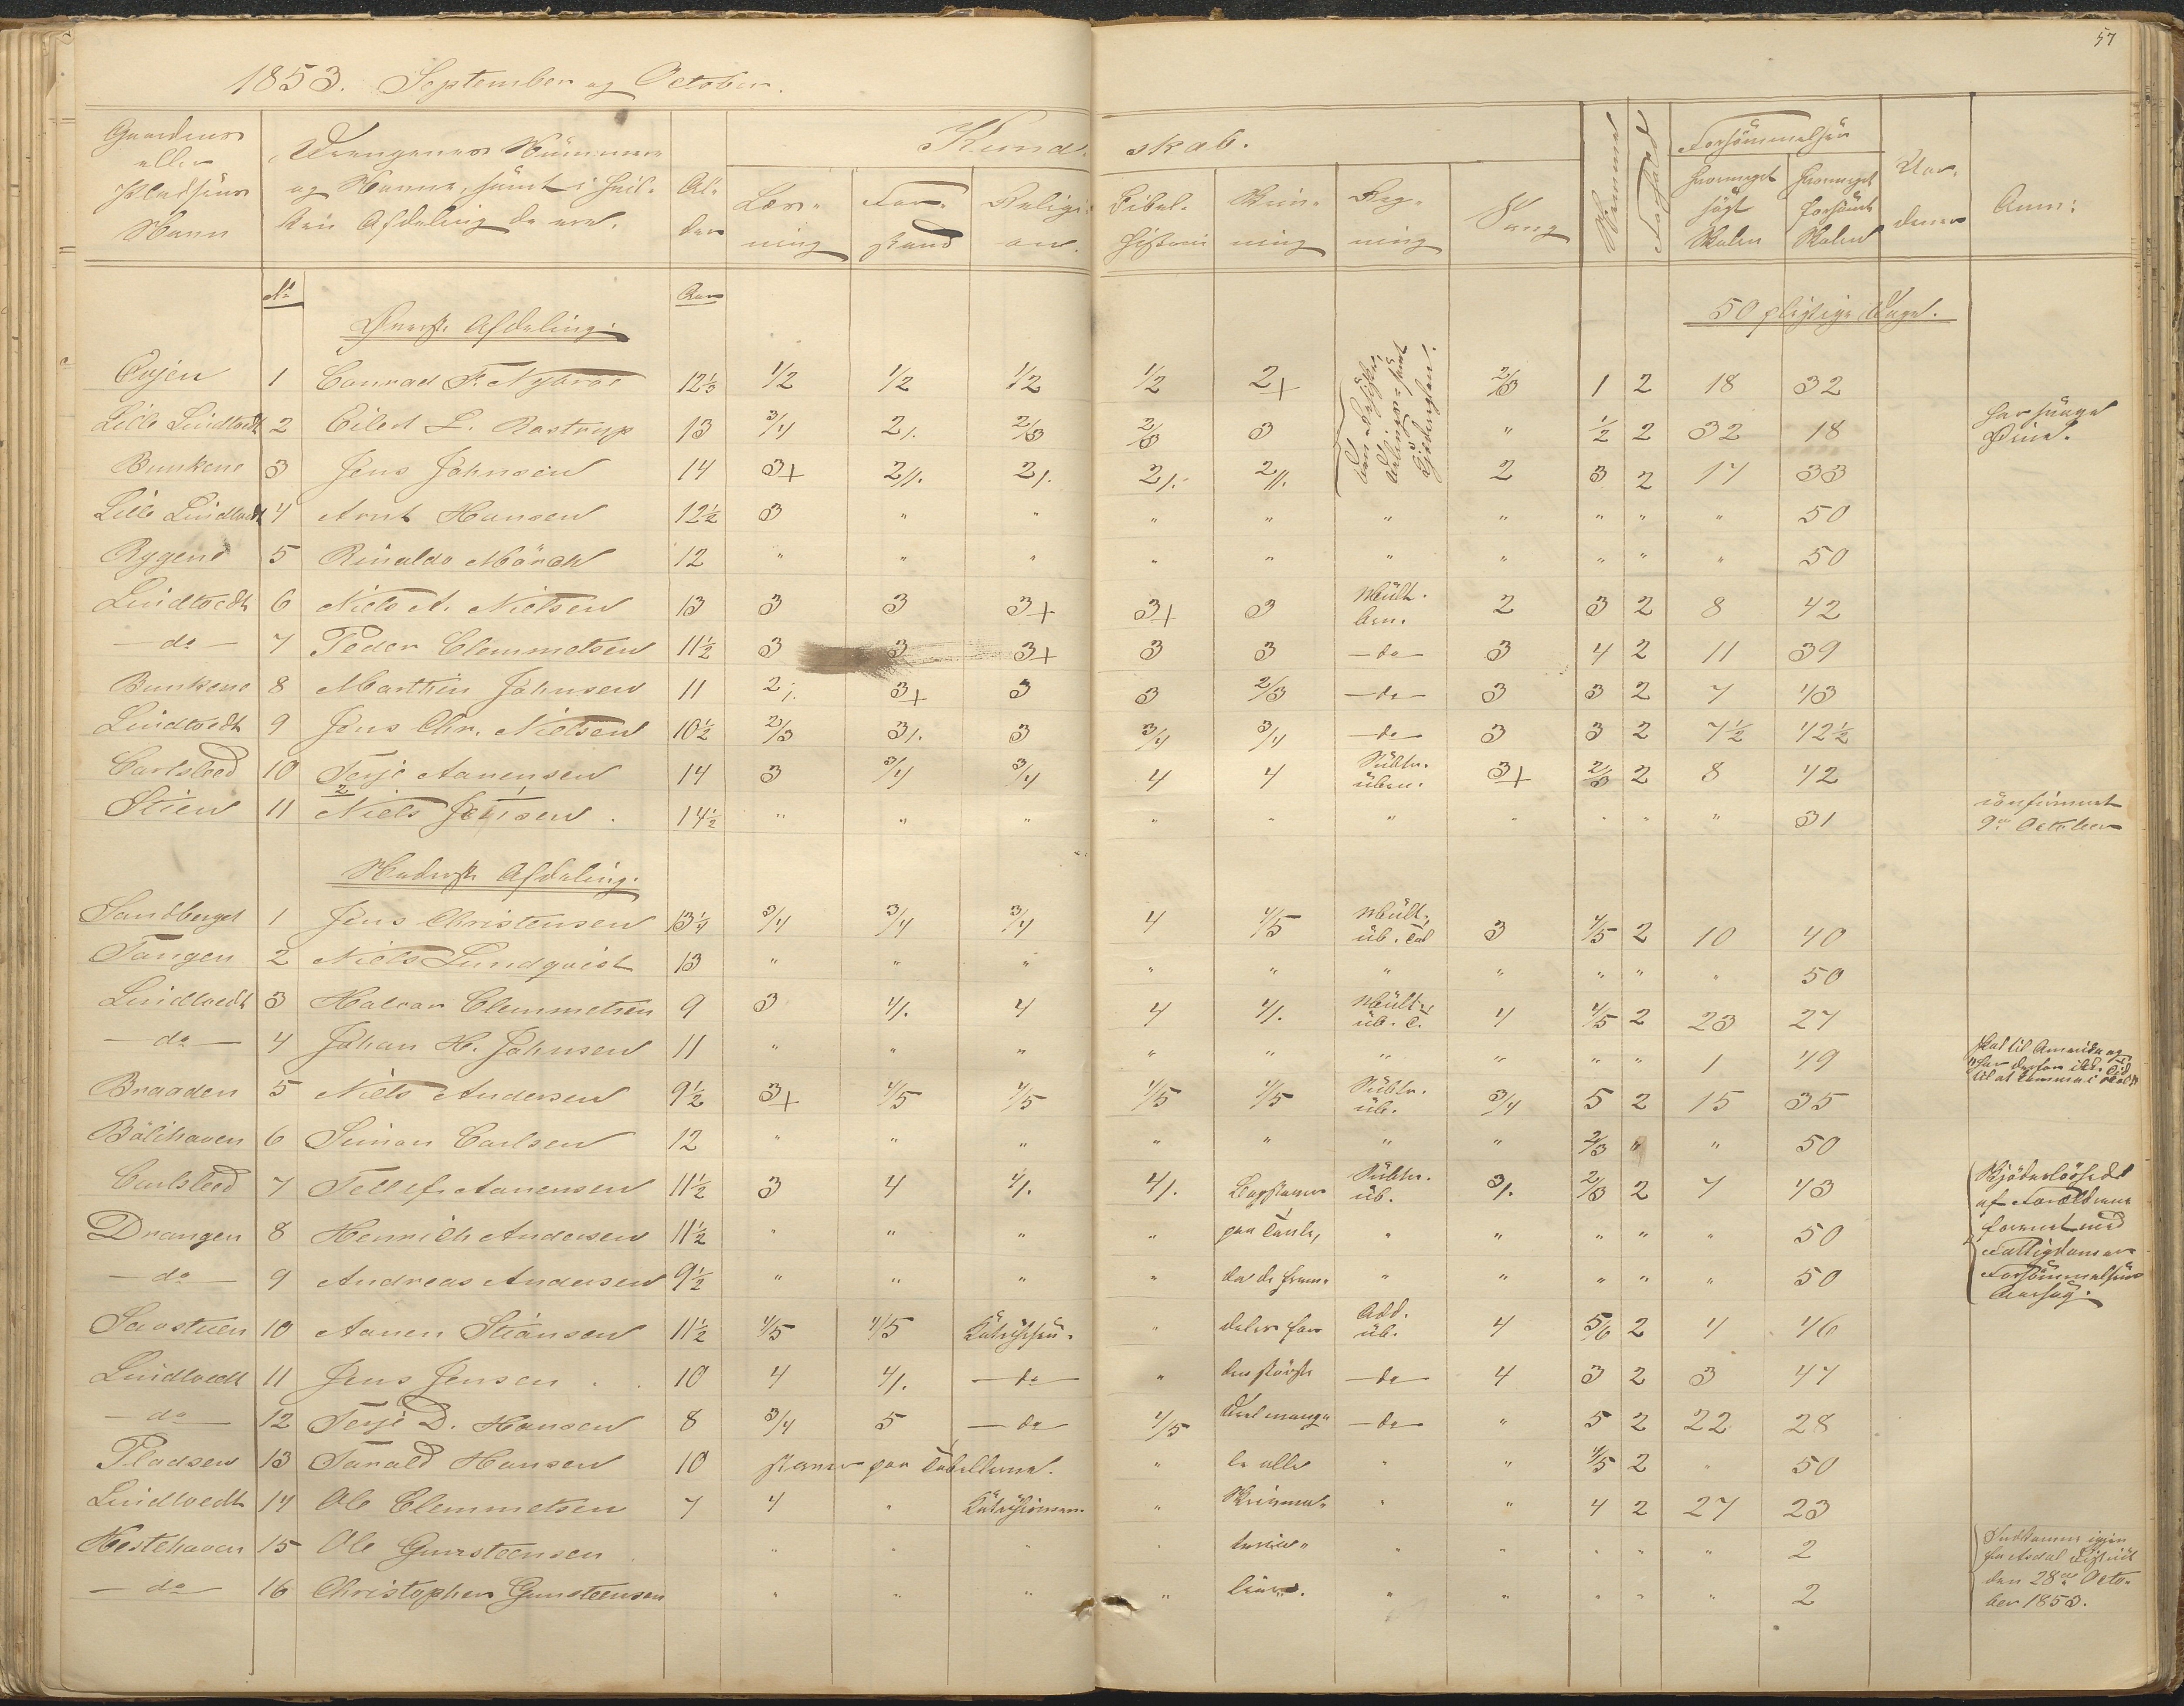 57
1853. September og October.
Gaardens eller Pladsens Navn
Drengenes Nummere og Navne, samt i hvilken Afdeling de ere.
Alder
Kundskab.
Læsning
Forstand
Religion.
Bibelhistorie
Skrivning
Regning
Sang
Nemme
Forhold
Forsømmelser
hvormeget søgt Skolen
hvormeget forsømt Skolen
Anm:
No
Aar
Øverste Afdeling.
50 pligtige Dage.
Evjen 1 Conrad F. Nybroe 12⅓ 1/2 1/2 1/2 1/2 2+ 2/3 1 2 18 32
Lille Lindtvedt 2 Eilert L. Rostrup 13 3/4 2/. 2/3 2/3 3 " 1/2 2 32 18
Bunkene 3 Jens Johnsen 14 3+ 2//. 2/. 2/. 2//. 2 3 2 17 33
Lille Lindtvedt 4 Arnt Hansen 12½ 3 " " " " " " " " " 50
Rygene 5 Rinaldo Mörch 12 " " " " " " " " " " 50
Lindtvedt 6 Niels A. Nielsen 13 3 3 3+ 3+ 3 Mult. ben. 2 3 2 8 42
— do — 7 Peder Clemmetsen 11½ 3 3 3+ 3 3 — do — 3 4 2 11 39
Bunkene 8 Marthin Johnsen 11 2/. 3+ 3 3 2/3 — do — 3 3 2 7 43
Lindtvedt 9 Jens Chr. Nielsen 10½ 2/3 3/. 3 3/4 3/4 — do — 3 3 2 7½ 42½
Carlsleed 10 Terje Aanensen 14 3 3/4 3/4 4 4 Subtr. üben. 3+ 2/3 2 8 42
Stien 11 Niels Jensen 14½ " " " " " " " " " " 31 confirmeret 9de October
Nederste Afdeling.
Sandberget 1 Jens Christensen 13¼ 3/4 3/4 3/4 4 4/5 Mult. üb. Tab 3 4/5 2 10 40
Tangen 2 Niels Lundqvist 13 " " " " " " " " " " 50
Lindtvedt 3 Halvor Clemmetsen 9 3 4/. 4 4 4/. Mult. üb. T. 4 4/5 2 23 27
— do — 4 Johan H. Johnsen 11 " " " " " " " " " 1 49 skal til Amerika og har derfor ikke Tid til at komme i Skole
Braaden 5 Niels Andersen 9½ 3+ 4/5 4/5 4/5 4/5 Subtr. üb. 3/4 5 2 15 35
Bölihaven 6 Simon Carlsen 12 " " " " " " " 2/3 " " 50
Carlsleed 7 Tellef Aanensen 11½ 3 4 4/. 4/. Bogstaver Subtr. üb. 3/. 2/3 2 7 43
Drangen 8 Henrich Andersen 11½ " " " " paa Tavle, " " " " " 50
— do — 9 Andreas Andersen 9½ " " " " da de frem- " " " " " 50
Saustuen 10 Aanen Stiansen 11½ 4/5 4/5 " deles for Add. üb. 4 5/6 2 4 46
Lindtvedt 11 Jens Jensen 10 4 4/. — do — " den største — do — 4 3 2 3 47
— do — 12 Terje D. Hansen 8 3/4 5 — do — 4/5 Deel mang- — do — " 5 2 22 28
Pladsen 13 Tarald Hansen 10 staver paa Tabellerne. " le alle " " 4/5 2 " 50
Lindtvedt 14 Ole Clemmetsen 7 4 " " Skrivma- " " 4 2 27 23
Hestehaven 15 Ole Gunsteensen " " " " teria- " " " " " 2
— do — 16 Christopher Gunsteensen " " " " lier. " " " " " 2
Indkommer igjen fra Asdal District den 28de October 1853.